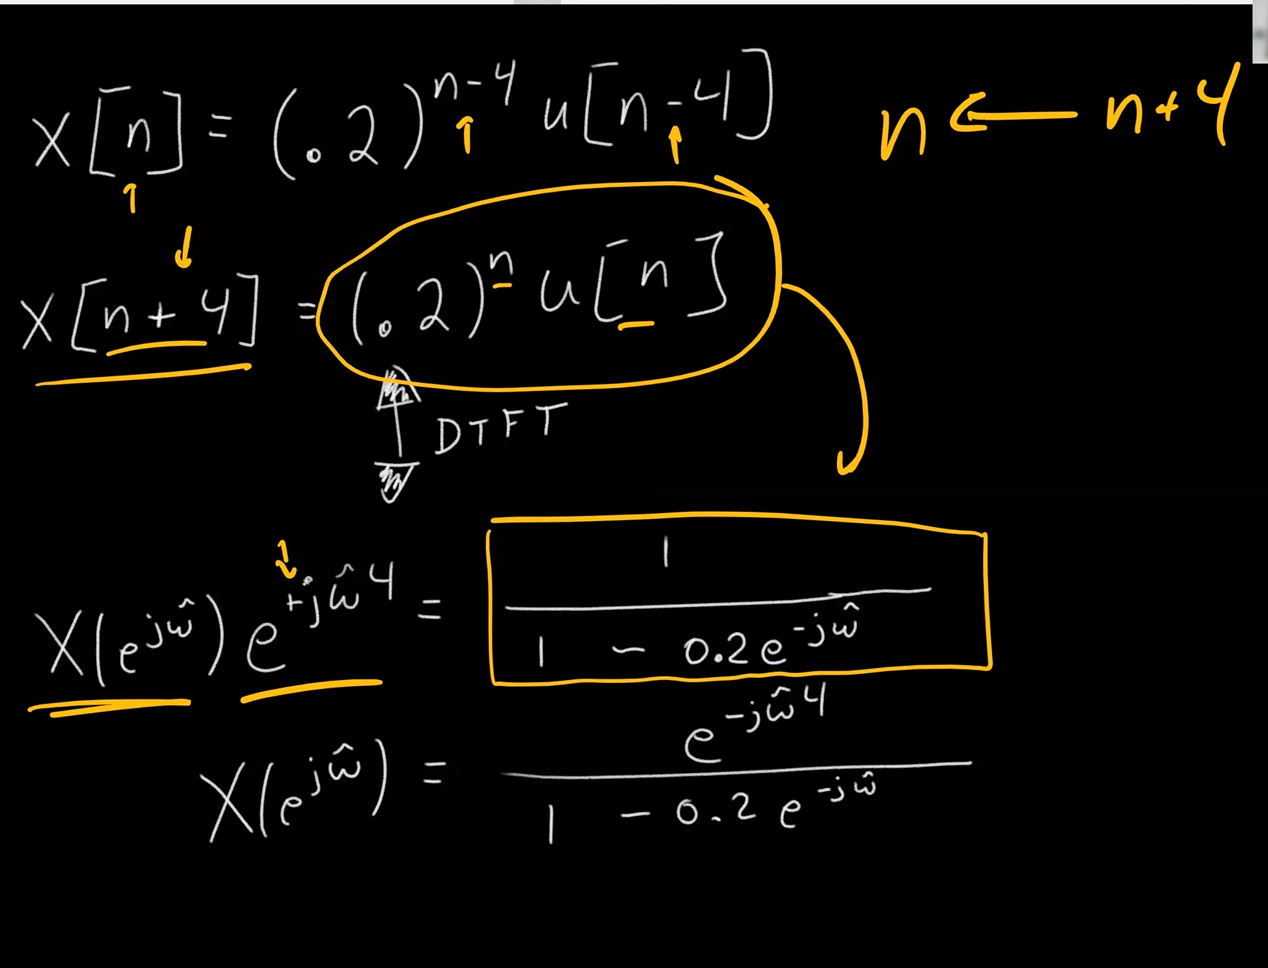 x[n] = (.2)^{n-4} u[n-4] n ← n+4
x[n+4] = (.2)^n u[n]
DTFT
X(e^{jω̂}) e^{+jω̂4} = 1 / (1 - 0.2e^{-jω̂})
X(e^{jω̂}) = e^{-jω̂4} / (1 - 0.2e^{-jω̂})